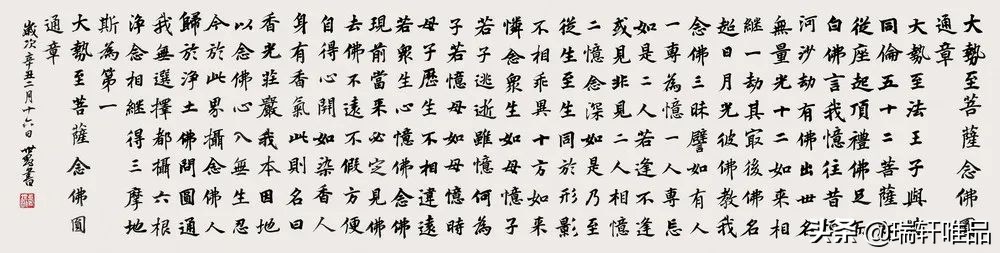 大勢至菩薩念佛圓
通章
大勢至法王子與
同倫五十二菩薩
從座起頂禮佛足
白佛言我憶往昔
河沙劫有佛出世名
無量光十二如來相
繼一劫其㝡後佛名
超日月光彼佛教我
念佛三昧譬如有人
一專為憶一人專忘
如是二人若逢不逢
或見非見二人相憶
二憶念深如是乃至
從生至生同於形影
不相乖異十方如來
憐念衆生如母憶子
若子逃逝雖憶何為
子若憶母如母憶時
母子歷生不相違遠
若衆生心憶佛念佛
現前當來必定見佛
去佛不遠不假方便
自得心開如染香人
身有香氣此則名曰
香光莊嚴我本因地
以念佛心入無生忍
今於此界攝念佛人
歸於淨土佛問圓通
我無選擇都攝六根
淨念相繼得三摩地
斯為第一
大勢至菩薩念佛圓
通章
歲次辛丑二月十六日 書
头条@瑞轩唯品